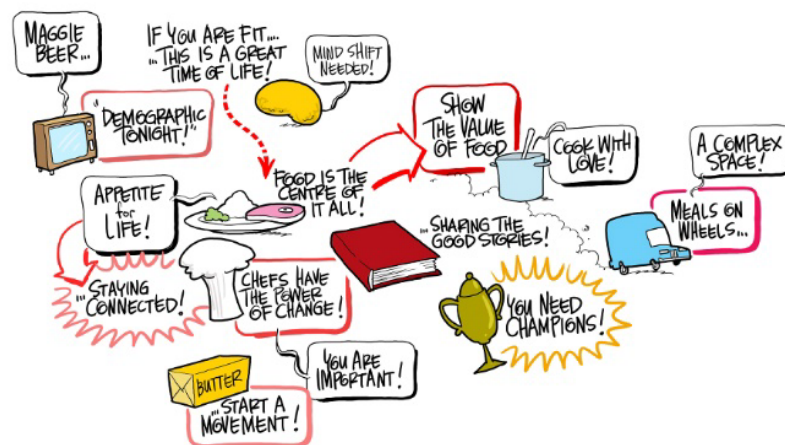 MAGGIE
BEER...
IF YOU ARE FIT....
...THIS IS A GREAT
TIME OF LIFE!
MIND SHIFT
NEEDED!
"DEMOGRAPHIC
TONIGHT!"
SHOW
THE VALUE
OF FOOD
COOK WITH
LOVE!
A COMPLEX
SPACE!
MEALS ON
WHEELS...
FOOD IS THE
CENTRE OF
IT ALL!
APPETITE
for
LIFE!
...SHARING THE
GOOD STORIES!
...STAYING
CONNECTED!
CHEFS HAVE
THE POWER
OF CHANGE!
YOU NEED
CHAMPIONS!
YOU ARE
IMPORTANT!
BUTTER
...START A
MOVEMENT!